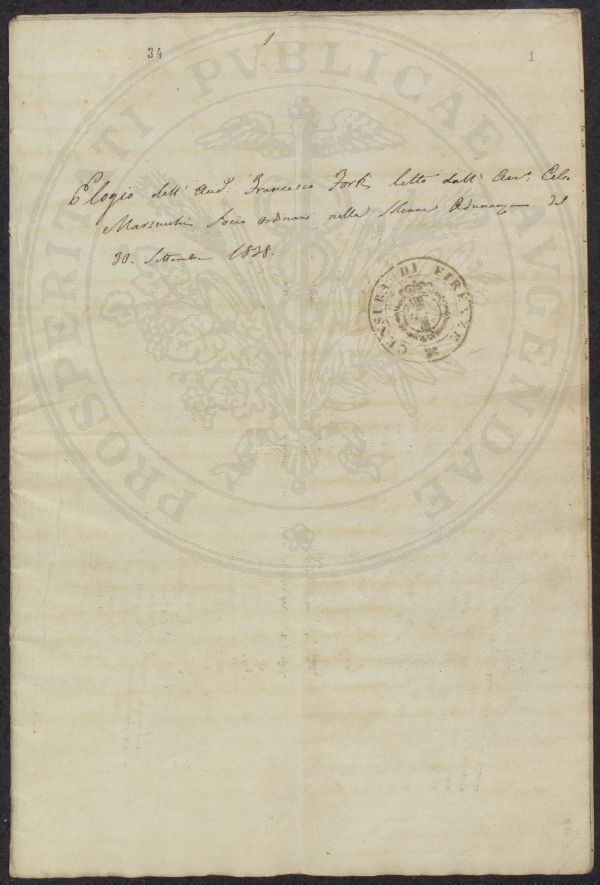 34
1
1
Elogio dell' Aud.: Francesco Forti letto dall' Avv.: Celso
Marzucchi Socio ordinario nella Solenne Adunanza del
30. Settembre 1838.
CENSURA DI FIRENZE
PROSPERITATI PVBLICAE AVGENDAE